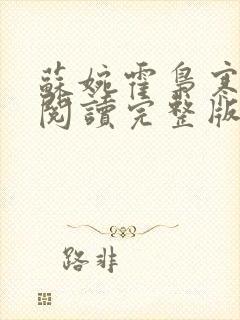 蘇婉霍梟寒
閱讀完整版
路非